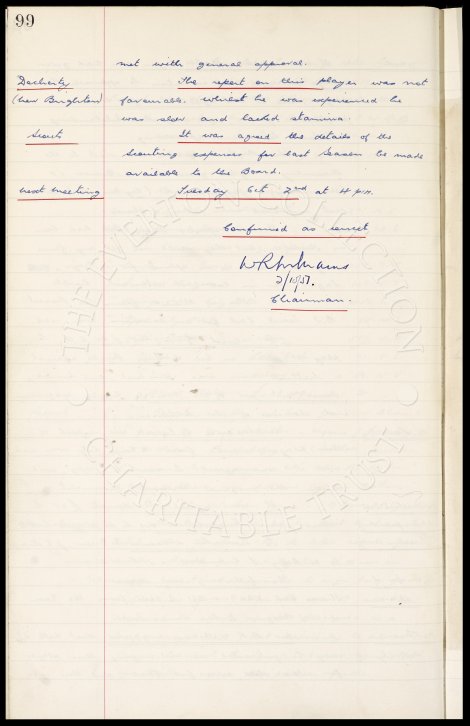 99
met with general approval.
Docherty The report on this player was not
(New Brighton) favourable. Whilst he was experienced he
was slow and lacked stamina.
Scouts It was agreed the details of the
scouting expenses for last season be made
available to the Board.
Next meeting Tuesday Oct 2nd at 4 p.m.
Confirmed as correct
W R Williams
2/10/51.
Chairman.
THE EVERTON COLLECTION
CHARITABLE TRUST